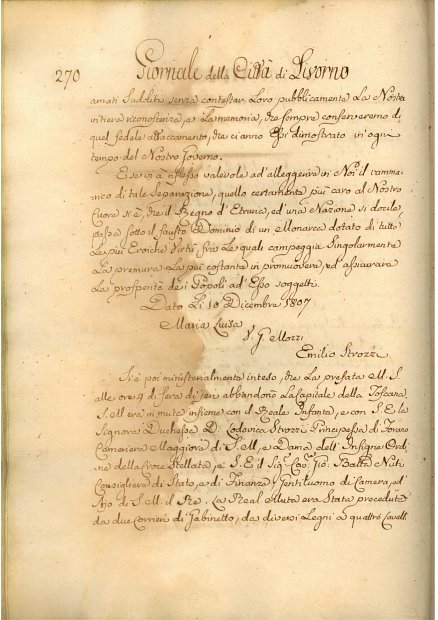 270 Giornale della Città di Livorno
amati Sudditi senza contestar Loro pubblicamente La Nostra
intiera riconoscenza, e La memoria, che sempre conserveremo di
quel fedele attaccamento, che ci anno Essi dimostrato in ogni
tempo del Nostro Governo.
E se vi à riflesso valevole ad'alleggerire in Noi il ramma
rico di tale Separazione, quello certamente piu' caro al Nostro
Cuore si è, che il Regno d'Etruria, ed una Nazione si docile
passa sotto il fausto Dominio di un Monarca dotato di tutte
Le piu Eroiche Virtù, fra Le quali campeggia Singolarmente
La premura La piu costante in promuovere, ed assicurare
La prosperità dei Popoli ad'Esso soggetti.
Dato Li 10 Dicembre 1807
Maria Luisa
V. G. Mozzi
Emilio Strozzi
Si è poi ministerialmente inteso, che La prefata M. S.
alle ore 4 di sera di jeri abbandonò La Capitale della Toscana.
S. M. era in muta insieme con il Reale Infante, e con S. E. la
Signora Duchessa D. Lodovica Strozzi Principessa di Forano
Cameriera Maggiora di S. M. e Dama dell'Insigne Ordi
ne della Croce Stellata, e S. E. il Sig.r Cav. Gio. Batta Nuti
Consigliere di Stato, e di Finanze, Gentiluomo di Camera, ed
Ajo di S. M. il Re. La Real Muta era Stata preceduta
da due Corrieri di Gabinetto, da diversi Legni a quattro Cavalli